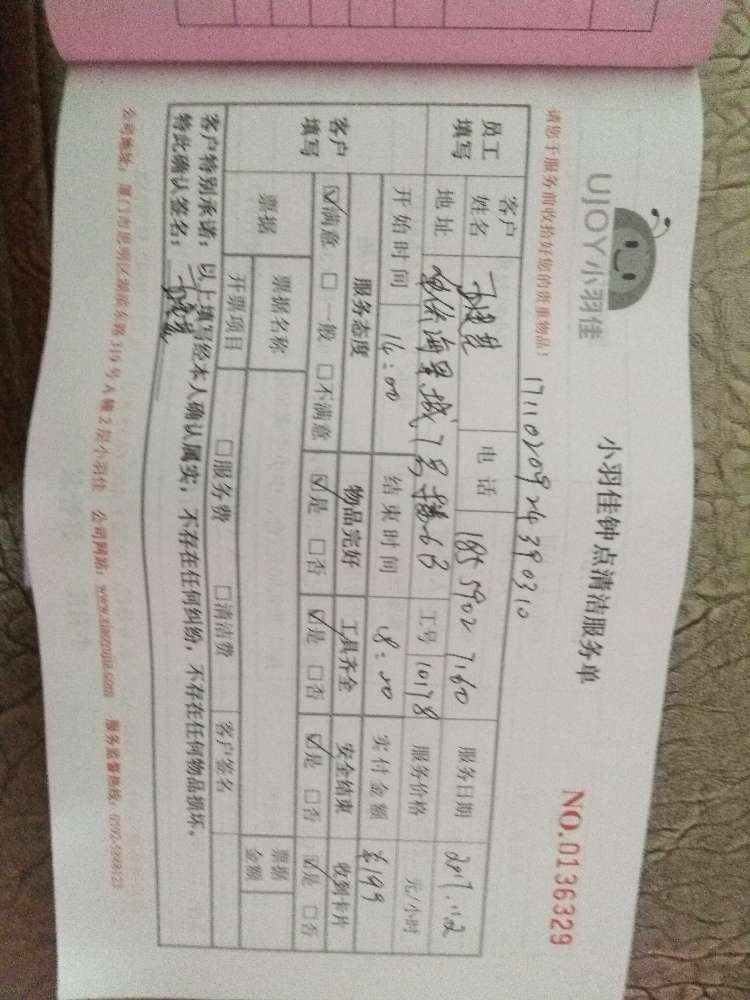 UJOY小羽佳
小羽佳钟点清洁服务单
NO.0136329
请您于服务前收拾好您的贵重物品!
17110209243 90310
员工填写
客户姓名
电话 185 5902 7160
服务日期 2017.11.2
地址
海景城7号楼6B
工号 10178
服务价格 元/小时
开始时间 16:00
结束时间 18:00
实付金额 ¥199
客户填写
服务态度 物品完好 工具齐全 安全结束 收到卡片
☑满意 □一般 □不满意 ☑是 □否 ☑是 □否 ☑是 □否 ☑是 □否
票据
票据名称
票据金额
开票项目 □服务费 □清洁费 客户签名
客户特别承诺:以上填写经本人确认属实,不存在任何纠纷,不存在任何物品损坏。
特此确认签名:
公司地址:厦门市思明区湖滨东路319号A幢2层小羽佳 公司网站:www.xiaoyujia.com 服务监督热线: